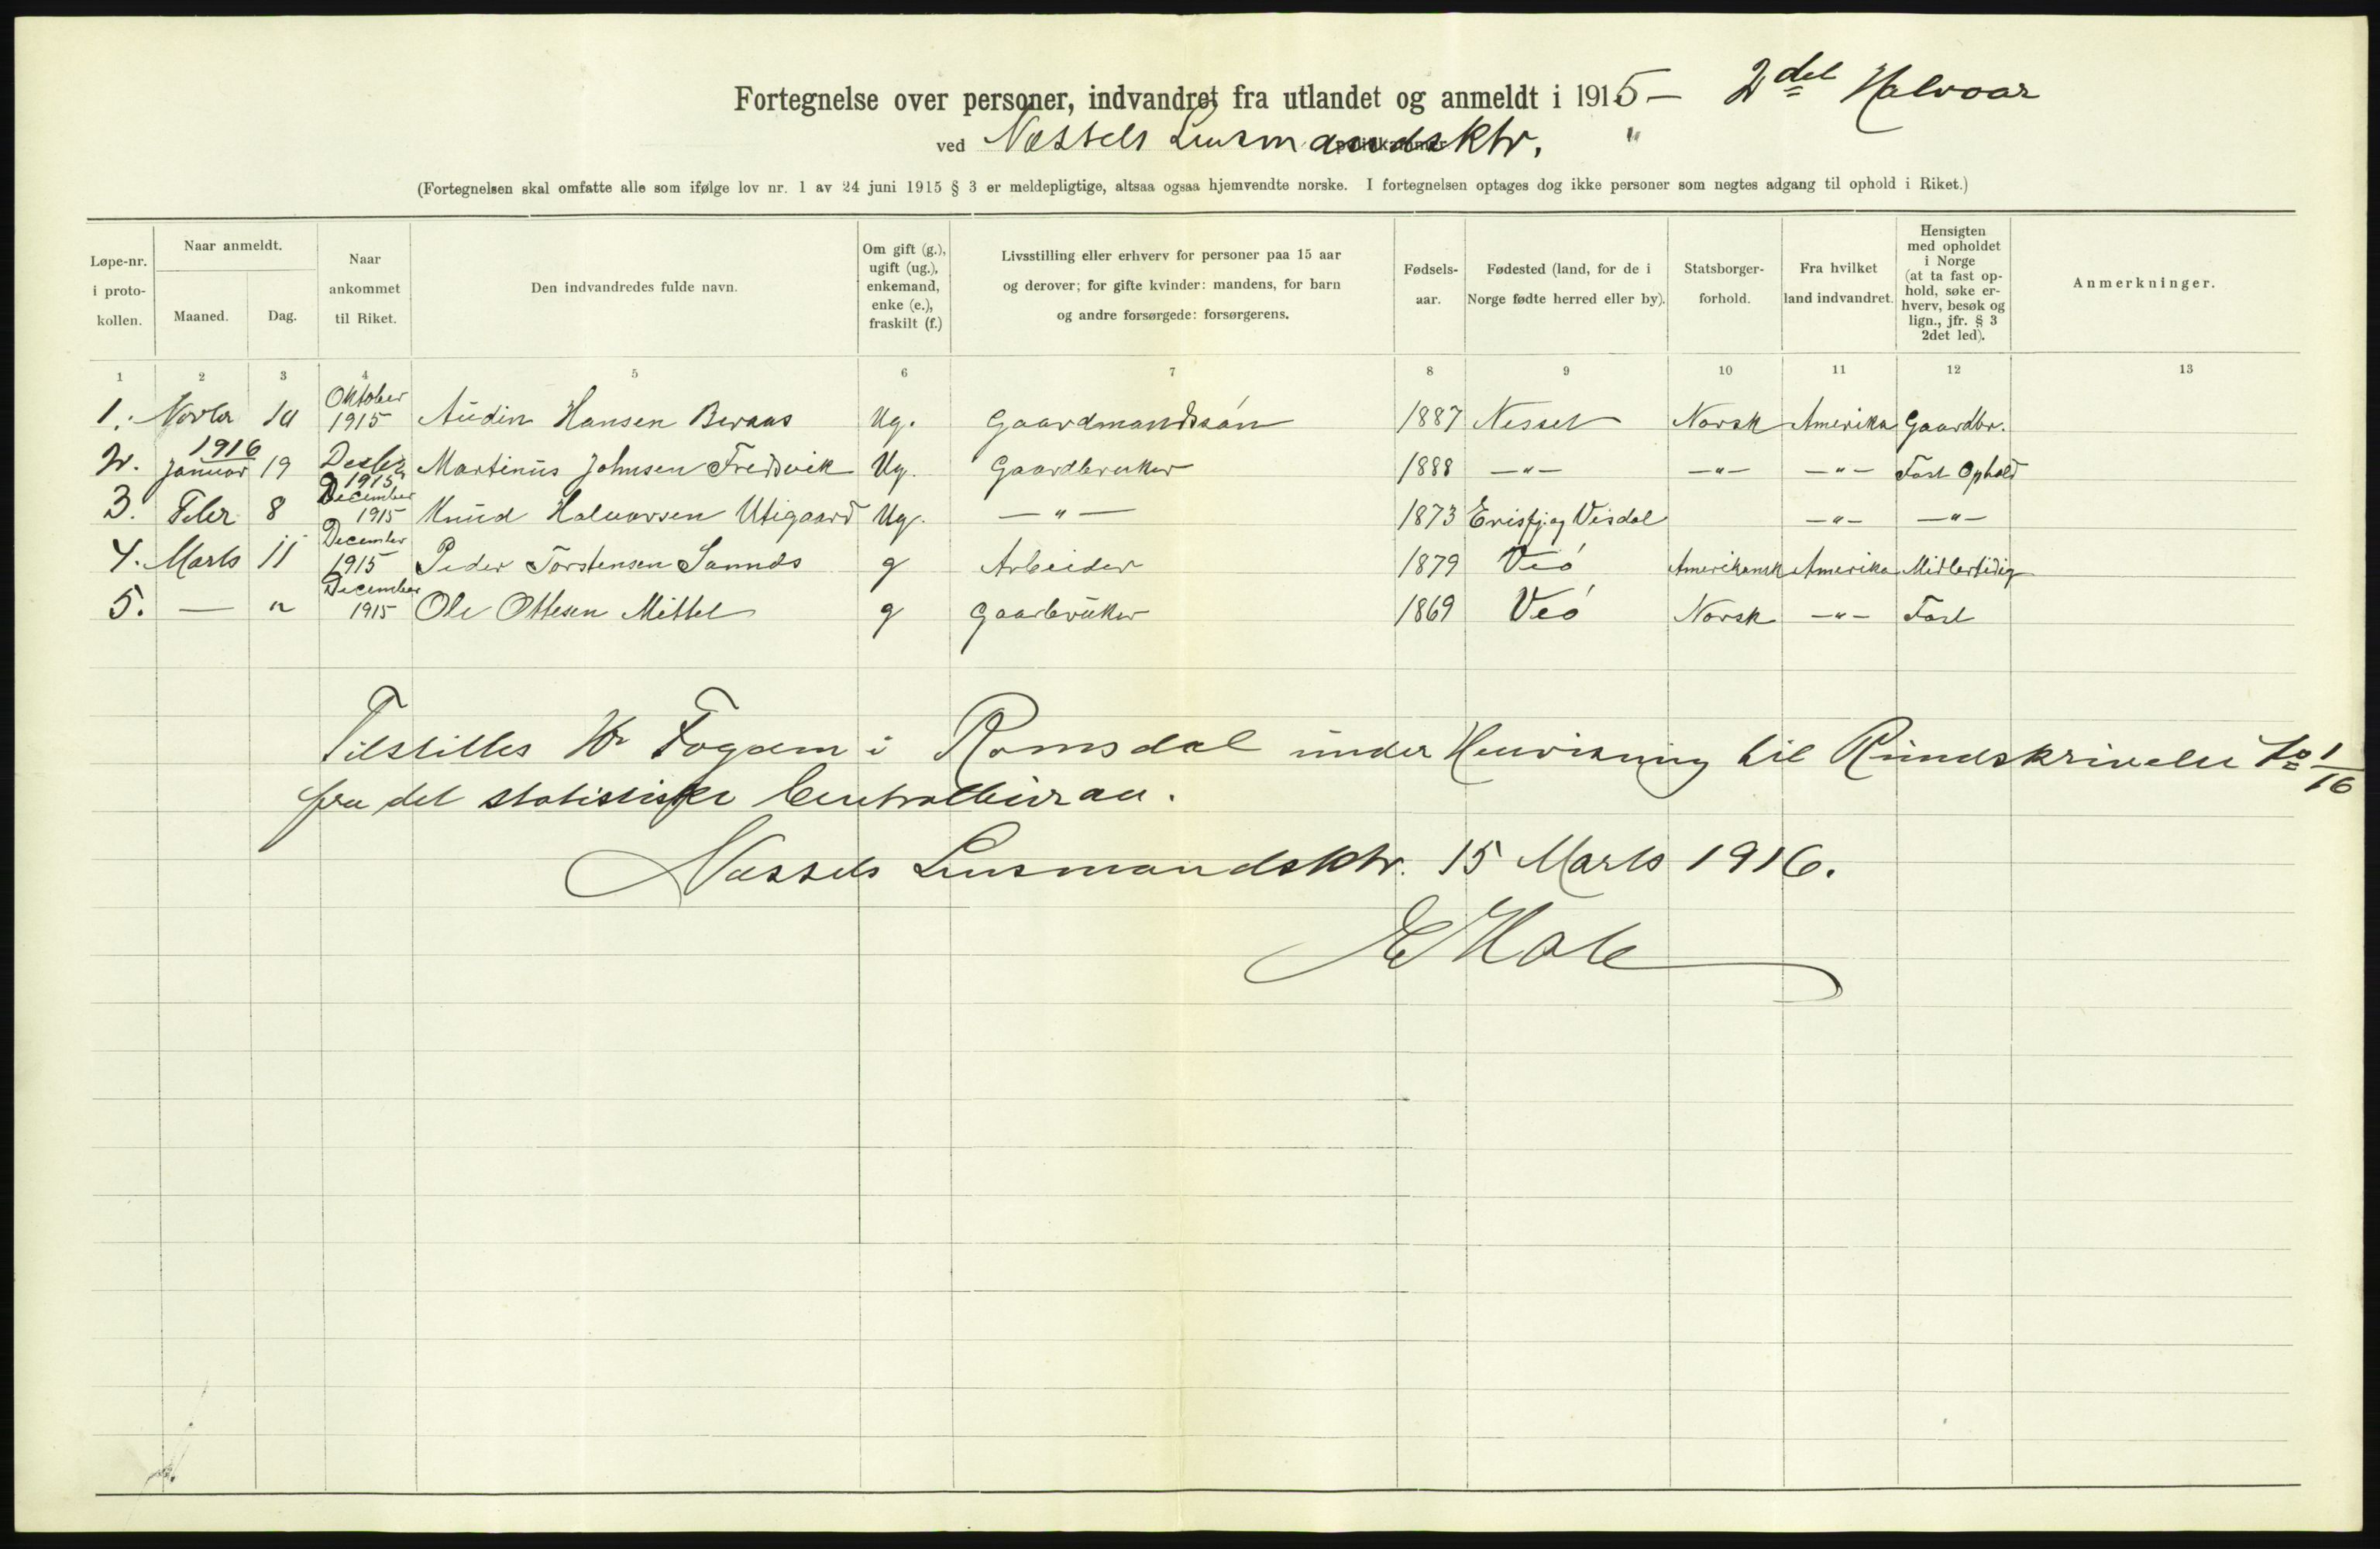 Fortegnelse over personer, indvandret fra utlandet og anmeldt i 1915 — 2det Halvaar
ved Næssets Lensmandsktr. "
(Fortegnelsen skal omfatte alle som ifølge lov nr. 1 av 24 juni 1915 § 3 er meldepligtige, altsaa ogsaa hjemvendte norske. I fortegnelsen optages dog ikke personer som negtes adgang til ophold i Riket.)
Løpe-nr. i proto-kollen.
Naar anmeldt.
Maaned. Dag.
Naar ankommet til Riket.
Den indvandredes fulde navn.
Om gift (g.), ugift (ug.), enkemand, enke (e.), fraskilt (f.)
Livsstilling eller erhverv for personer paa 15 aar og derover; for gifte kvinder: mandens, for barn og andre forsørgede: forsørgerens.
Fødsels-aar.
Fødested (land, for de i Norge fødte herred eller by).
Statsborger-forhold.
Fra hvilket land indvandret.
Hensigten med opholdet i Norge (at ta fast op-hold, søke er-hverv, besøk og lign., jfr. § 3 2det led).
Anmerkninger.
1 2 3 4 5 6 7 8 9 10 11 12 13
1. Novbr Oktober 1915 Audin Hansen Ug. Gaardmandssøn 1887 Nesset Norsk Amerika Gaardbr.
2. 1916 Januar 19 Decbr 1915 Martinus Johnsen Fredsvik Ug. Gaardbruker 1888 —"— —"— —"— Fast Ophold
3. Febr 8 December 1915 Knud Halvorsen Utigaard Ug. —"— 1873 Erisfj og Visdal —"— —"—
4. Marts 11 December 1915 Peder Torstensen g Arbeider 1879 Veø Amerikansk Amerika Midlertidig
5. — " December 1915 Ole Ottesen Mittet g Gaarbruker 1869 Veø Norsk —"— Fast
Tilstilles Hr Fogden i Romsdal under Henvisning til Rundskrivelse No 1/16
fra det statistiske Centralbureau.
Næssets Lensmandsktr. 15 Marts 1916.